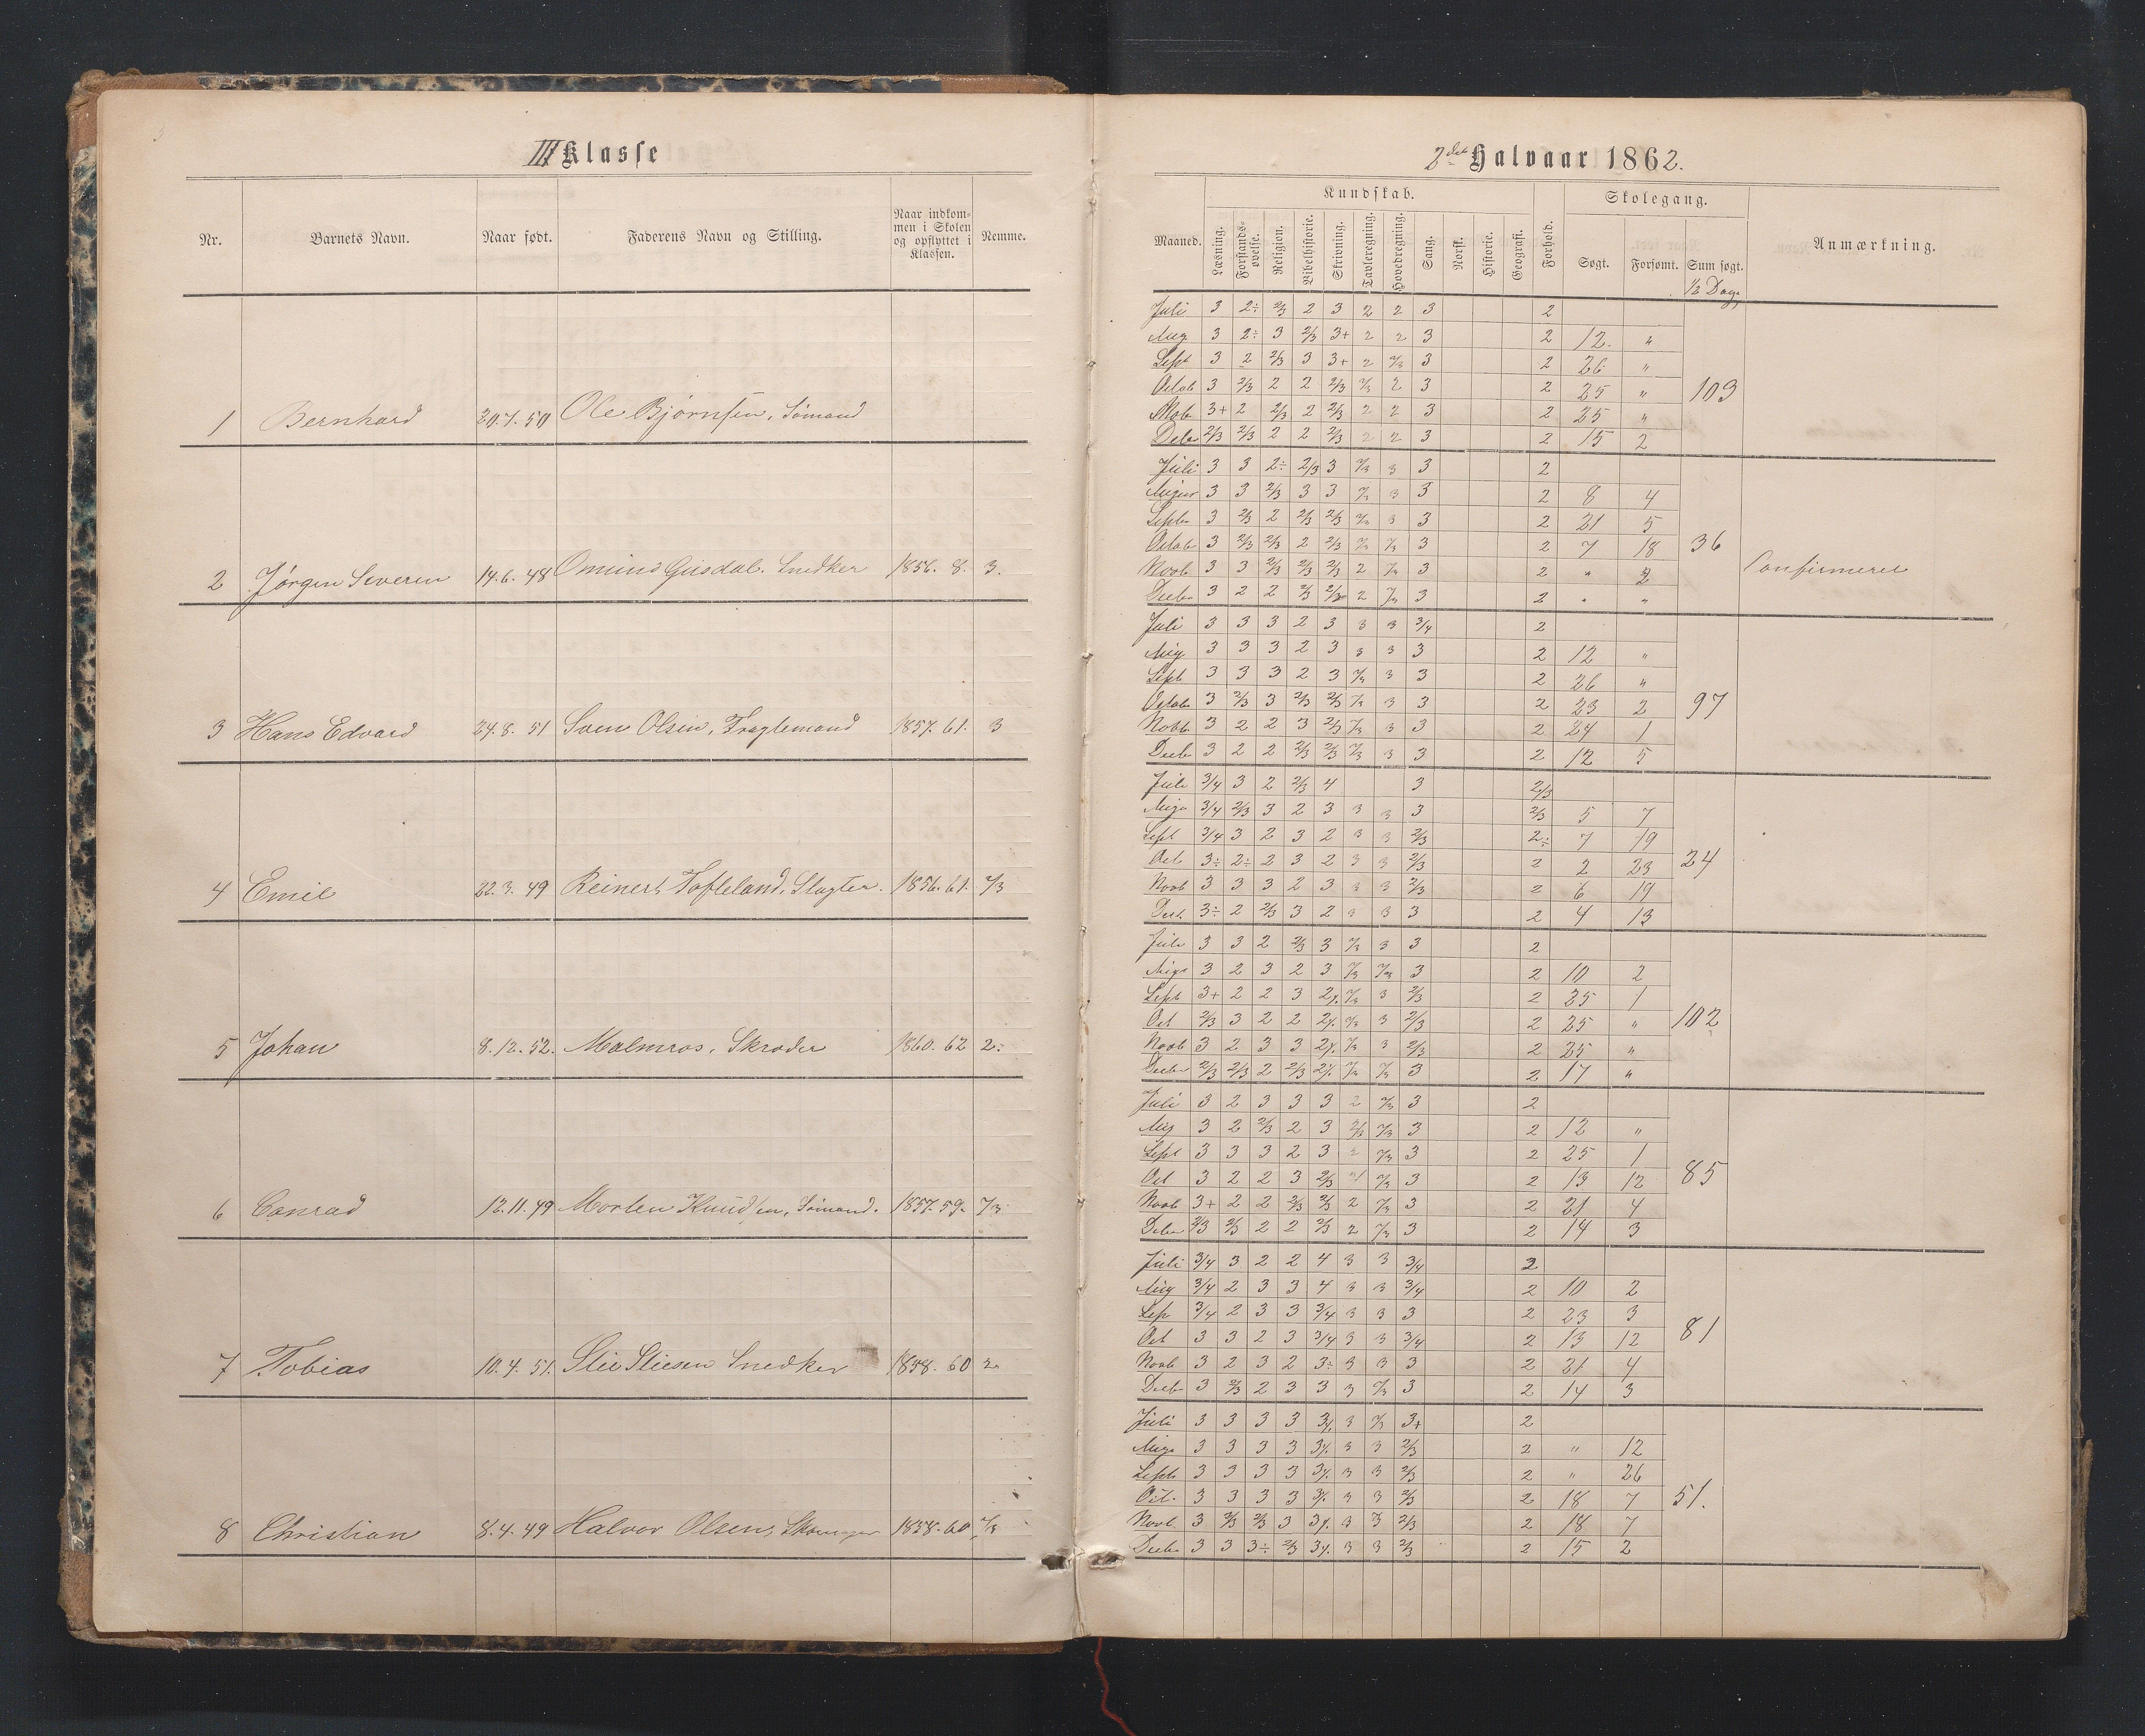 III Klasse
Nr. Barnets Navn. Naar født. Faderens Navn og Stilling. Naar indkommen i Skolen og opflyttet i Klassen. Nemme.
1 Bernhard 20.7.50 Ole Bjørnsen, Sømand
2 Jørgen Severin 14.6.48 Gusdal. Snedker 1856. 8. 3.
3 Hans Edvard 24.8.51 Sven Olsen, Fragtemand 1857. 61. 3
4 Emil 22.3.49 Reinert Tofteland, Slagter. 1856. 61. 2/3
5 Johan 8.12.52. Malmros, Skræder 1860. 62 2÷
6 Conrad 12.11.49 Morten Knudsen, Sømand. 1857. 59. 2/3
7 Tobias 10.4.51. Slie Sliesen Snedker 1858. 60 2
8 Christian 8.4.49 Halvor Olsen, 1858. 60 2/3
2det Halvaar 1862.
Maaned. Kundskab. Forhold. Skolegang. Anmærkning.
Læsning. Forstandsøvelse. Religion. Bibelhistorie. Skrivning. Tavleregning. Hovedregning. Sang. Norsk. Historie. Geografi. Søgt. Forsømt. Sum søgt.
1/2 Dage
Juli 3 2÷ 2/3 2 3 2 2 3 2
Aug 3 2÷ 3 2/3 3+ 2 2 3 2 12. "
Sept 3 2 2/3 3 3+ 2 2/3 3 2 26 "
Octob 3 2/3 2 2 2/3 2/3 2 3 2 25 " 103
Novb 3+ 2 2/3 2 2/3 2 2 3 2 25 "
Debr 2/3 2/3 2 2 2/3 2 2 3 2 15 2
Juli 3 3 2÷ 2/3 3 2/3 3 3 2
August 3 3 2/3 3 3 2/3 3 3 2 8 4
Septbr 3 2/3 2 2/3 2/3 2/3 3 3 2 21 5
Octob 3 2/3 2/3 2 2/3 2/3 2/3 3 2 7 18 36
Novb 3 3 2/3 2/3 2/3 2 2/3 3 2 " 2 Confirmeret
Decbr 3 2 2 2/3 2/3 2 2/3 3 2 " "
Juli 3 3 3 2 3 3 3 3/4 2
Aug 3 3 3 2 3 3 3 3 2 12 "
Septb 3 3 3 2 3 2/3 3 3 2 26 "
Octob 3 2/3 3 2/3 2/3 2/3 3 3 2 23 2 97
Novb 3 2 2 3 2/3 2/3 3 3 2 24 1
Decbr 3 2 2 2/3 2/3 2/3 3 3 2 12 5
Juli 3/4 3 2 2/3 4 3 2/3
Aug 3/4 2/3 3 2 3 3 3 3 2/3 5 7
Sept 3/4 3 2 3 2 3 3 2/3 2÷ 7 19
Oct 3÷ 2÷ 2 3 2 3 3 2/3 2 2 23 24
Novb 3 3 3 2 3 3 3 2/3 2 6 19
Decb 3÷ 2 2/3 3 2 3 3 3 2 4 13
Juli 3 3 2 2/3 3 2/3 3 3 2
Aug 3 2 3 2 3 2/3 2/3 3 2 10 2
Septb 3+ 2 2 3 2/3 3 2/3 2 25 1
Oct 2/3 3 2 2 2/3 3 2/3 2 25 " 102
Novb 3 2 3 3 2/3 3 2/3 2 25 "
Decbr 2/3 2/3 2 2/3 2/3 2/3 3 2 17 "
Juli 3 2 3 3 3 2 2/3 3 2
Aug 3 2 2/3 2 3 2/3 2/3 3 2 12 "
Sept 3 3 3 2 3 2 2/3 3 2 25 1
Oct 3 2 2 3 2/3 2/3 3 2 13 12 85
Novb 3+ 2 2 2/3 2/3 2 2/3 3 2 21 4
Debr 2/3 2/3 2 2 2/3 2 2/3 3 2 14 3
Juli 3/4 3 2 2 4 3 3 3/4 2
Aug 3/4 2 3 3 4 3 3 3/4 2 10 2
Sep 3/4 2 3 3 3/4 3 3 3 2 23 3
Oct 3 3 2 3 3/4 3 3 3/4 2 13 12 81
Novb 3 2 3 2 3÷ 3 3 3 2 21 4
Decbr 3 2/3 2 3 3 3 2/3 3 2 14 3
Juli 3 3 3 3 3 2/3 3+ 2
Aug 3 3 3 3 3 3 2/3 2 " 12
Septb 3 3 3 3 3 3 2/3 2 " 26
Oct. 3 3 3 3 3 3 2/3 2 18 7 51.
Novb 3 2/3 2/3 3 3 3 2/3 2 18 7
Decbr 3 3 3÷ 2/3 3 3 2/3 2 15 2